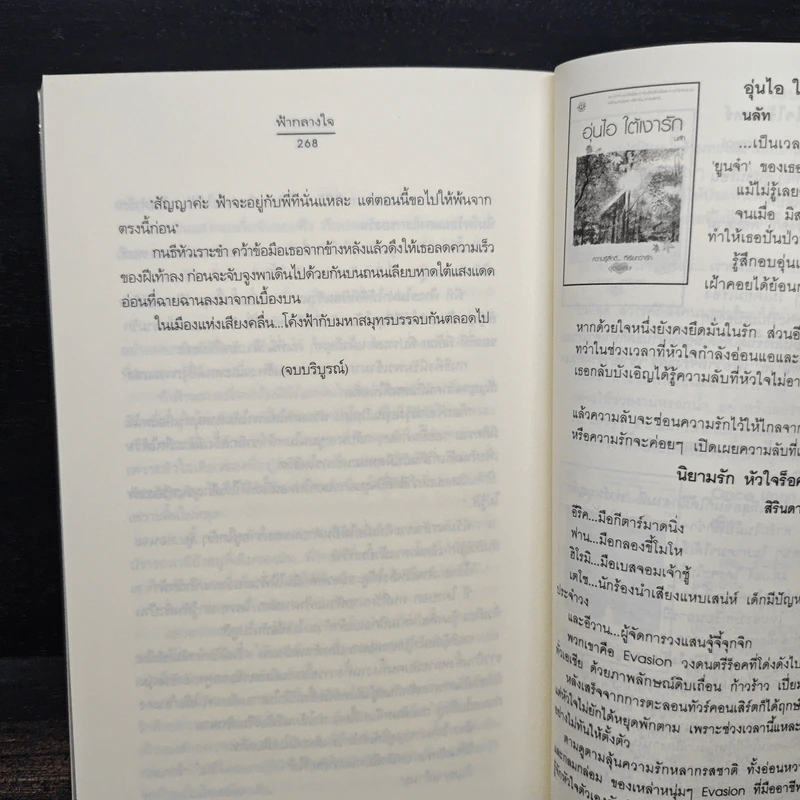 ฟ้ากลางใจ
268
"สัญญาค่ะ ฟ้าจะอยู่กับพี่ที่นั่นแหละ แต่ตอนนี้ขอไปให้พ้นจาก
ตรงนี้ก่อน"
กนธีหัวเราะขำ คว้าข้อมือเธอจากข้างหลังแล้วดึงให้เธอลดความเร็ว
ของฝีเท้าลง ก่อนจะจับจูงพาเดินไปด้วยกันบนถนนเลียบหาดใต้แสงแดด
อ่อนที่ฉายฉานลงมาจากเบื้องบน
ในเมืองแห่งเสียงคลื่น...โค้งฟ้ากับมหาสมุทรบรรจบกันตลอดไป
(จบบริบูรณ์)
อุ่นไอ ใต้เงารัก
นลัท
อุ่นไอ ใ
นลัท
...เป็นเวลา
'ยูนจำ' ของเธอ
แม้ไม่รู้เลย
จนเมื่อ มิส
ทำให้เธอปั่นป่ว
รู้สึกอบอุ่นเ
เฝ้าคอยได้ย้อนก
หากด้วยใจหนึ่งยังคงยึดมั่นในรัก ส่วนอี
ทว่าในช่วงเวลาที่หัวใจกำลังอ่อนแอและ
เธอกลับบังเอิญได้รู้ความลับที่หัวใจไม่อา
แล้วความลับจะซ่อนความรักไว้ให้ไกลจาก
หรือความรักจะค่อยๆ เปิดเผยความลับที่เ
นิยามรัก หัวใจร็อค
สิรินดา
อีริค...มือกีตาร์มาดนิ่ง
ฟาน...มือกลองขี้โมโห
ฮิโรมิ...มือเบสจอมเจ้าชู้
เตโซ...นักร้องนำเสียงแหบเสน่ห์ เด็กมีปัญห
ประจำวง
และอีวาน...ผู้จัดการวงแสนจู้จี้จุกจิก
พวกเขาคือ Evasion วงดนตรีร็อคที่โด่งดังไป
ทั่วเอเชีย ด้วยภาพลักษณ์ดิบเถื่อน ก้าวร้าว เปี่ยม
หลังเสร็จจากการตะลอนทัวร์คอนเสิร์ตก็ได้ฤกษ์
แต่หัวใจไม่ยักได้หยุดพักตาม เพราะช่วงเวลานี้แหละ
อย่างไม่ทันให้ตั้งตัว
ตามดูตามลุ้นความรักหลากรสชาติ ทั้งอ่อนหว
และกลมกล่อม ของเหล่าหนุ่มๆ Evasion ที่มีออาชีพ